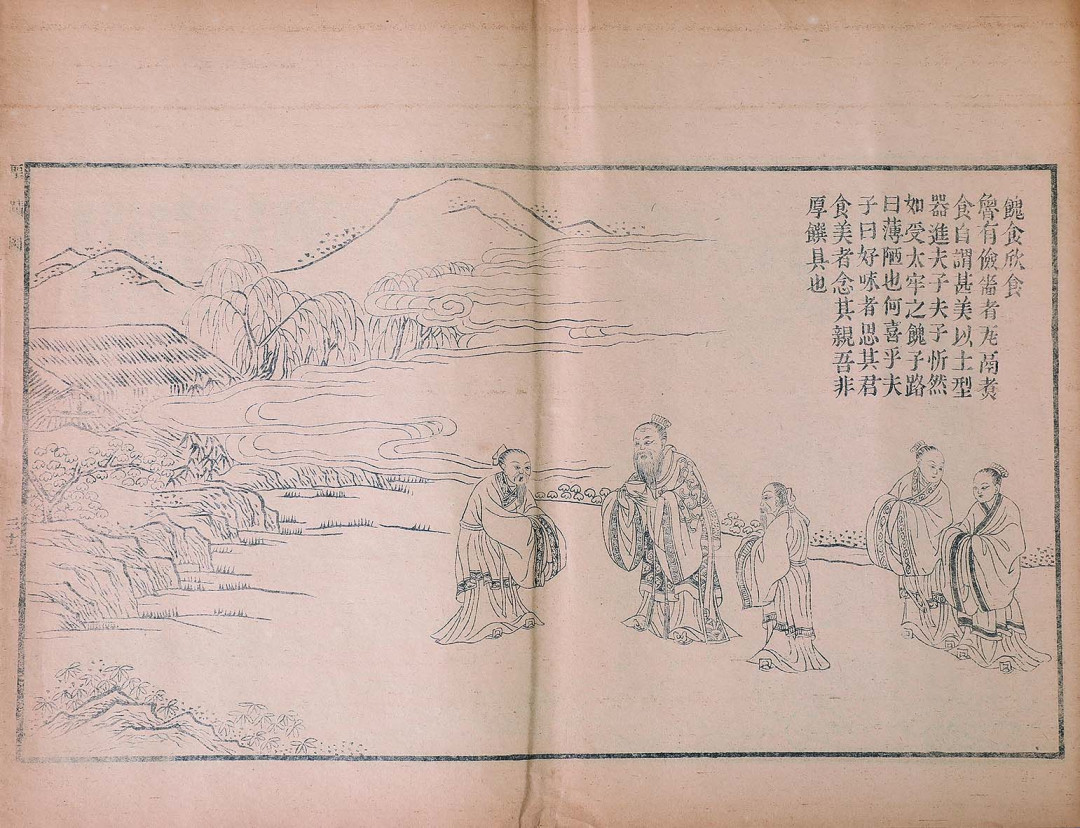 餽食欣食
魯有儉嗇者瓦鬲煑
食自謂甚美以土型
器進夫子夫子忻然
如受太牢之餽子路
曰薄陋也何喜乎夫
子曰好味者思其君
食美者念其親吾非
厚饌具也
聖蹟圖